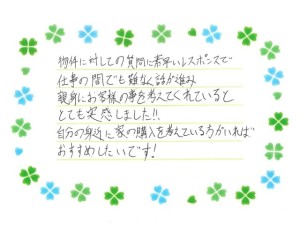 物件に対しての質問に素早いレスポンスで
仕事の間でも難なく話が進み
親身にお客様の事を考えてくれていると
とても実感しました!!
自分の身近に家の購入を考えている方がいれば
おすすめしたいです!